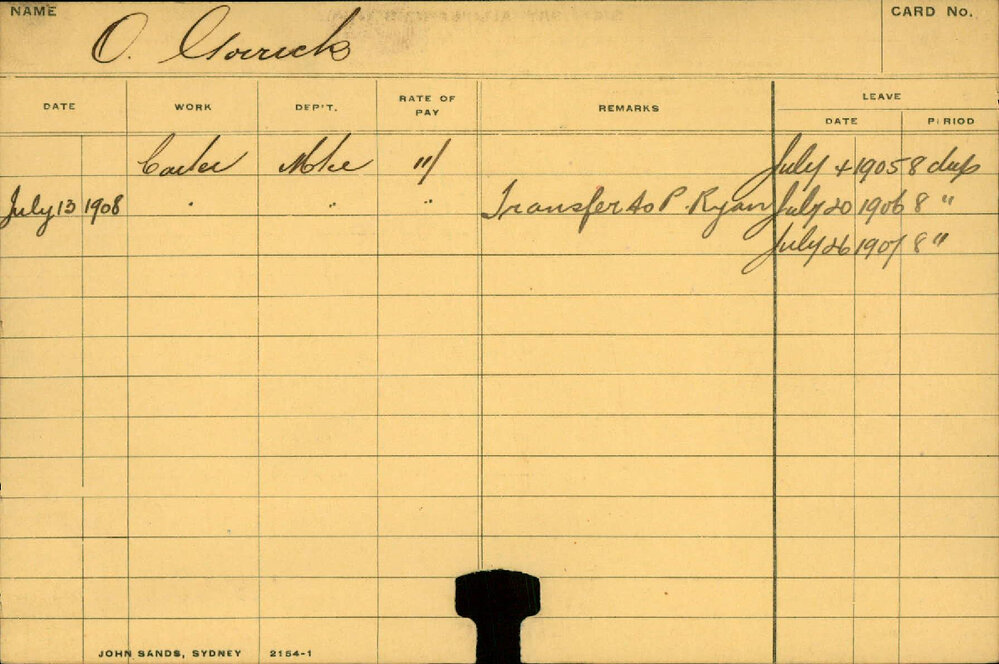 NAME
CARD No.
O. Gorrick
DATE WORK DEP'T. RATE OF PAY REMARKS LEAVE
DATE PERIOD
Carter 11/ July 4 1905 8 days
July 13 1908 " " " Transfer to P. Ryan July 20 1906 8 "
July 26 1907 8 "
JOHN SANDS, SYDNEY 2154-1